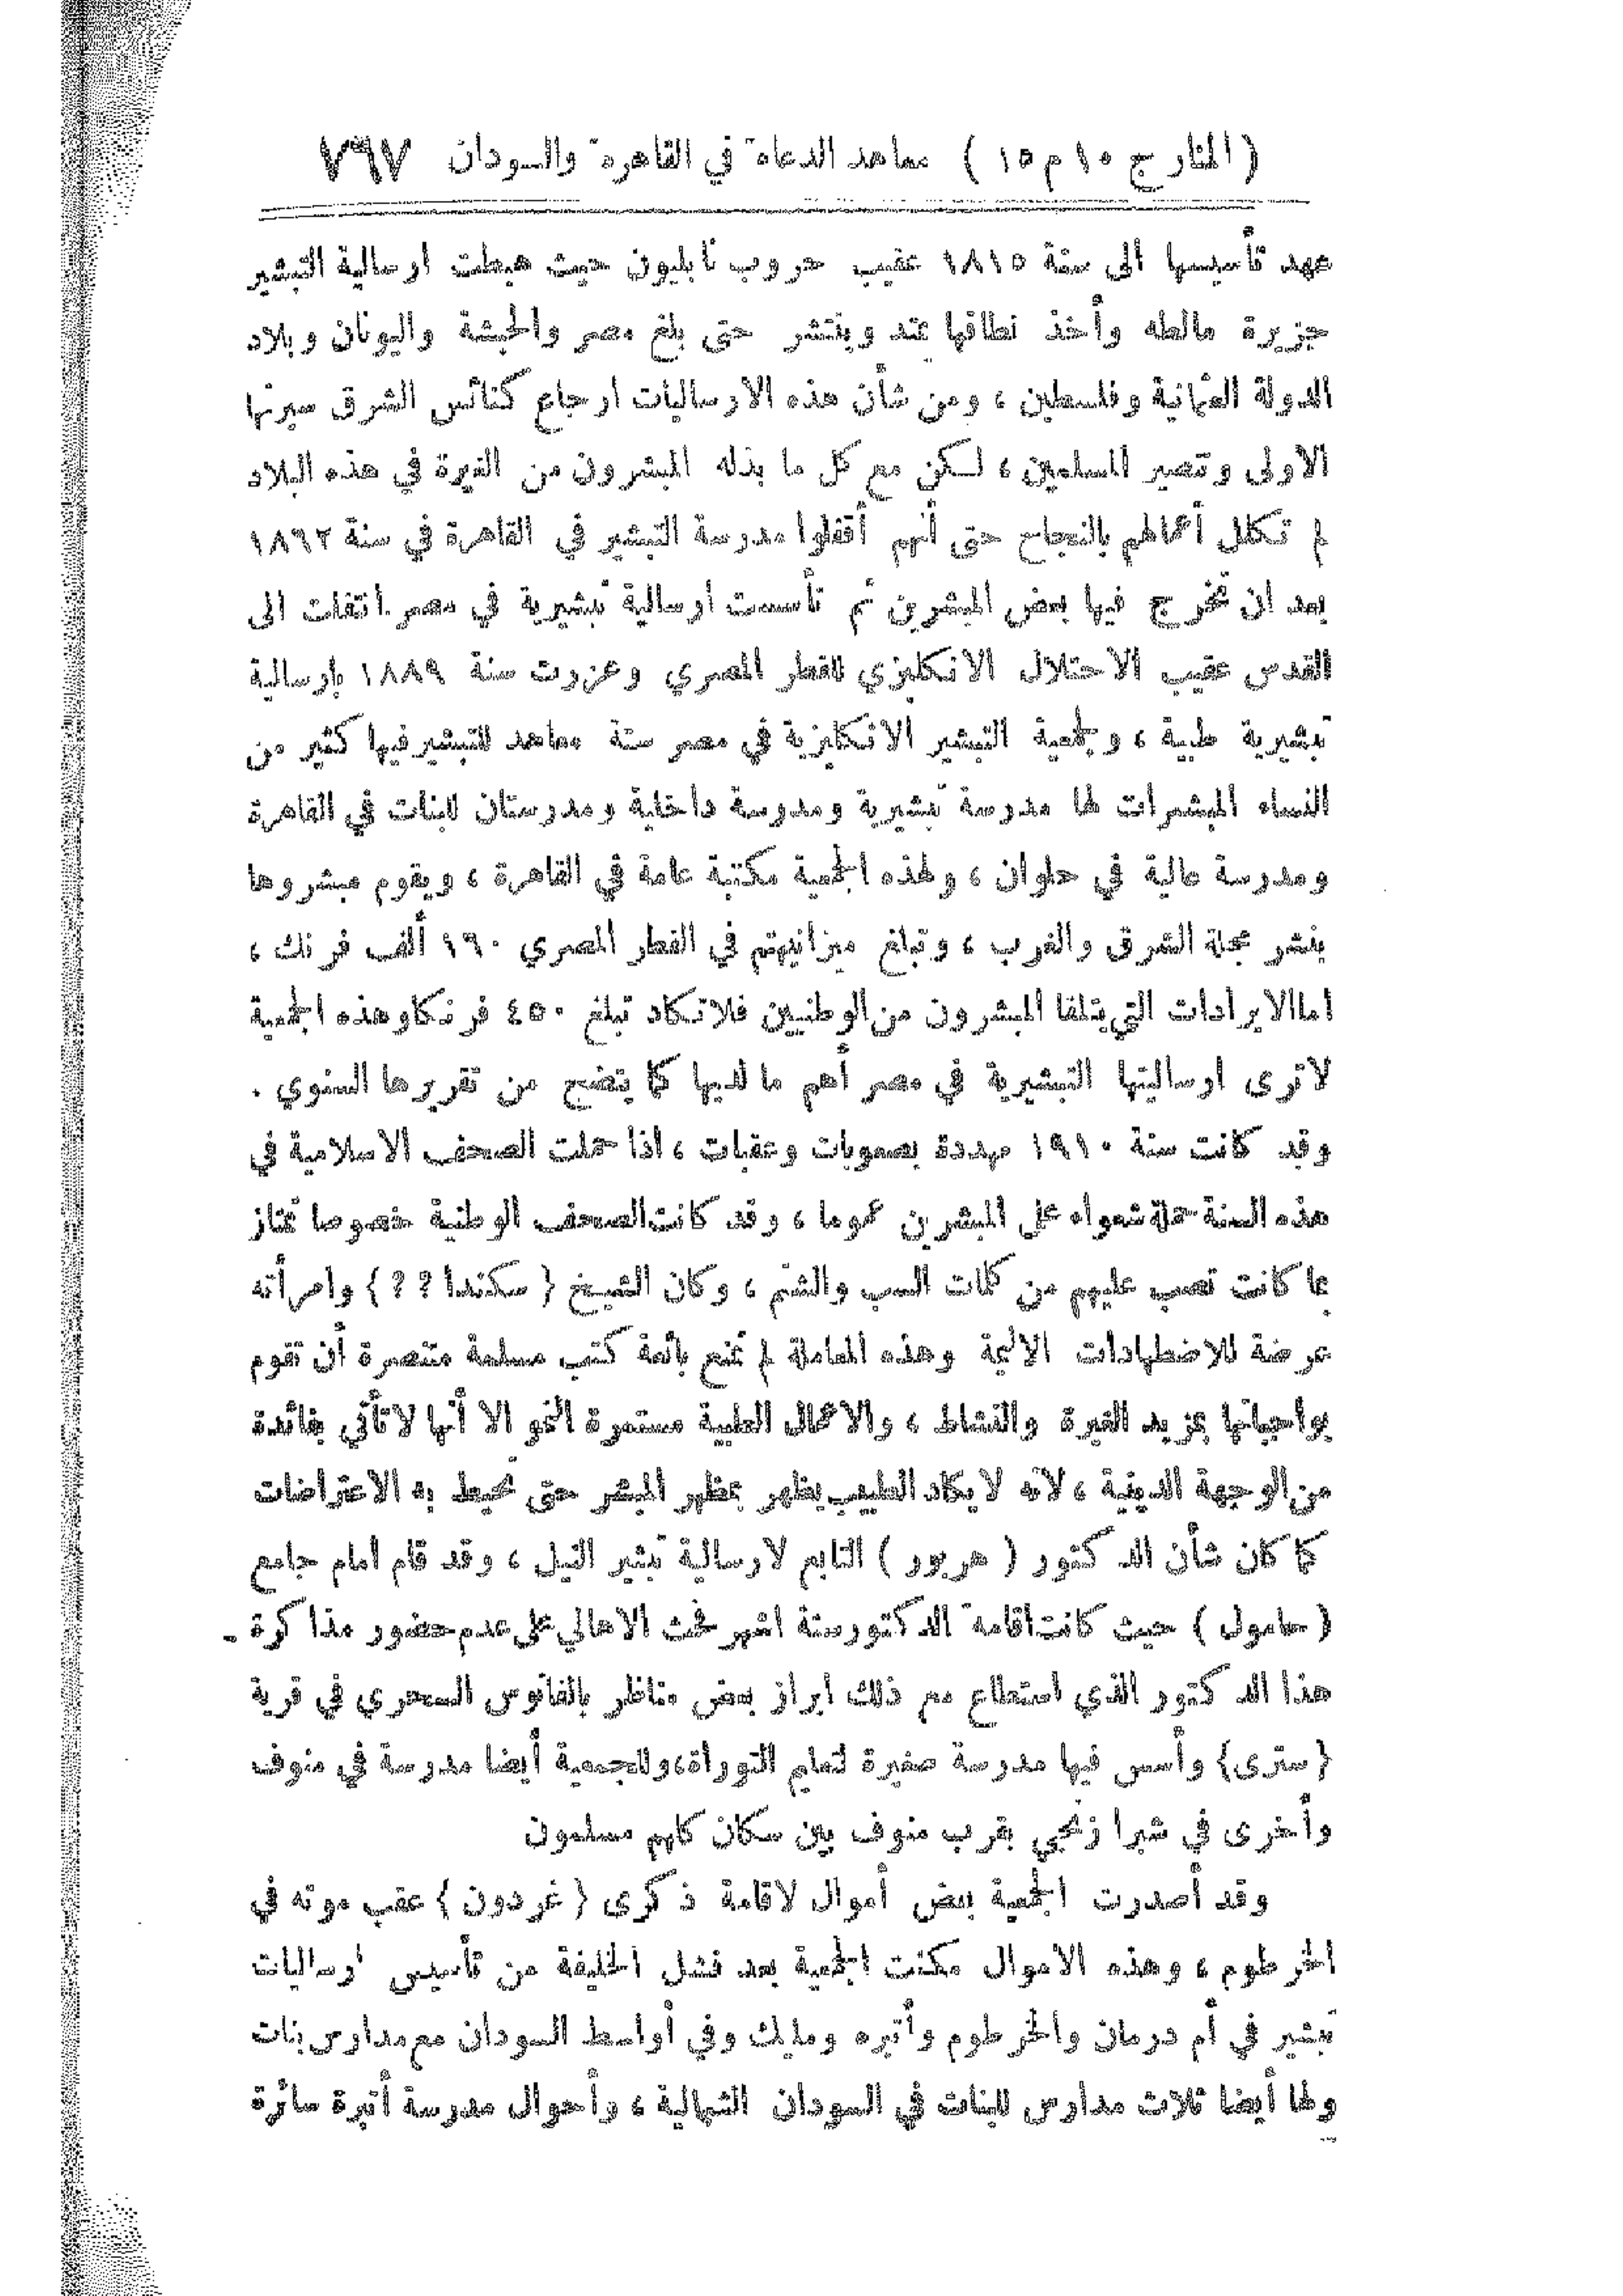 ( المنار ج ١٠ م ١٥ ) معاهد الدعاة في القاهرة والسودان ٧٩٧
عهد تأسيسها الى سنة ١٨١٥ عقيب حروب نابليون حيث هبطت ارسالية التبشير
جزيرة مالطه وأخذ نطاقها يمتد وينتشر حتى بلغ مصر والحبشة واليونان وبلاد
الدولة العثمانية وفلسطين ، ومن شأن هذه الارساليات ارجاع كنائس الشرق سيرتها
الاولى وتنصير المسلمين ، لكن مع كل ما بذله المبشرون من الغيرة في هذه البلاد
لم تكلل أعمالهم بالنجاح حتى أنهم أقفلوا مدرسة التبشير في القاهرة في سنة ١٨٦٢
بعد ان تخرج فيها بعض المبشرين ثم تأسست ارسالية تبشيرية في مصر انتقلت الى
القدس عقيب الاحتلال الانكليزي للقطر المصري وعززت سنة ١٨٨٩ بإرسالية
تبشيرية طبية ، ولجمعية التبشير الانكليزية في مصر ستة معاهد للتبشير فيها كثير من
النساء المبشرات لها مدرسة تبشيرية ومدرسة داخلية ومدرستان للبنات في القاهرة
ومدرسة عالية في حلوان ، ولهذه الجمعية مكتبة عامة في القاهرة ، ويقوم مبشروها
بنشر مجلة الشرق والغرب ، وتبلغ ميزانيتهم في القطر المصري ١٩٠ ألف فرنك ،
اما الايرادات التي يتلقا المبشرون من الوطنيين فلا تكاد تبلغ ٤٥٠ فرنكا وهذه الجمعية
لا ترى ارساليتها التبشيرية في مصر أهم ما لديها كما يتضح من تقريرها السنوي .
وقد كانت سنة ١٩١٠ مهددة بصعوبات وعقبات ، اذا حملت الصحف الاسلامية في
هذه السنة حملة شعواء على المبشرين عموما ، وقد كانت الصحف الوطنية خصوصا تمتاز
بما كانت تصب عليهم من كلمات السب والشتم ، وكان الشيخ { سكندا ؟ ؟ } وامرأته
عرضة للاضطهادات الاليمة وهذه المعاملة لم تمنع بائعة كتب مسلمة متنصرة أن تقوم
بواجباتها بمزيد الغيرة والنشاط ، والاعمال الطبية مستمرة النمو الا أنها لا تأتي بفائدة
من الوجهة الدينية ، لانه لا يكاد الطبيب يظهر بمظهر المبشر حتى تحيط به الاعتراضات
كما كان شأن الدكتور ( هربور ) التابع لارسالية تبشير النيل ، وقد قام امام جامع
( حامول ) حيث كانت اقامة الدكتور ستة اشهر فحث الاهالي على عدم حضور مذاكرة
هذا الدكتور الذي استطاع مع ذلك ابراز بعض مناظر بالفانوس السحري في قرية
{ سترى } وأسس فيها مدرسة صغيرة لتعليم التوراة، وللجمعية أيضا مدرسة في منوف
وأخرى في شبرا زنجي بقرب منوف بين سكان كلهم مسلمون
وقد أصدرت الجمعية بعض أموال لاقامة ذكرى { غردون } عقب موته في
الخرطوم ، وهذه الاموال مكنت الجمعية بعد فشل الخليفة من تأسيس ارساليات
تبشير في أم درمان والخرطوم وأتبره ومليك وفي أواسط السودان مع مدارس بنات
ولها أيضا ثلاث مدارس للبنات في السودان الشمالية ، وأحوال مدرسة أتبرة سائرة